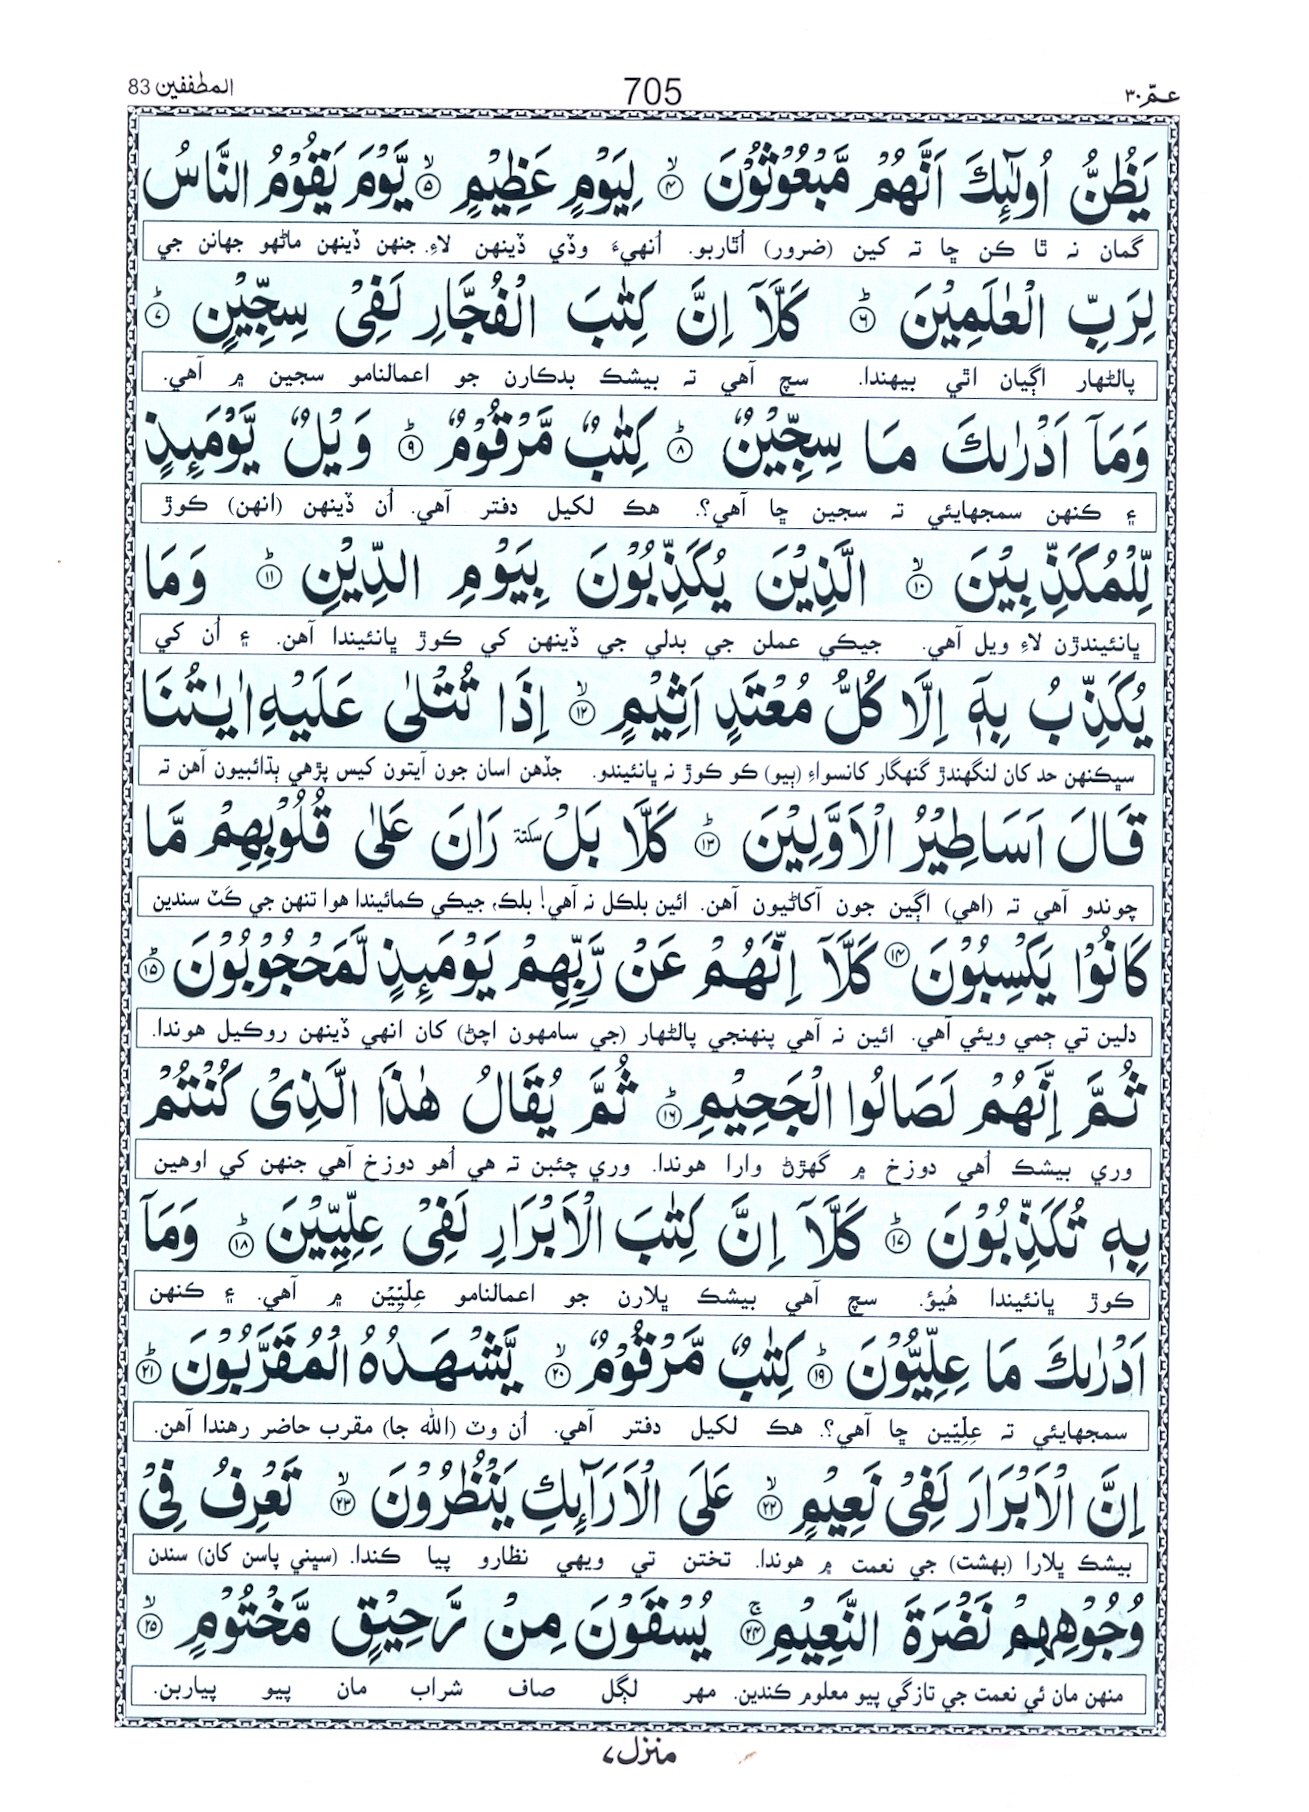 عـمّ ٣٠ 705 المطففين 83
يَظُنُّ اُولٰٓئِكَ اَنَّهُمْ مَّبْعُوْثُوْنَ ۙ﴿۴﴾ لِيَوْمٍ عَظِيْمٍ ۙ﴿۵﴾ يَّوْمَ يَقُوْمُ النَّاسُ
گمان نہ ٿا ڪن ڇا تہ کين (ضرور) اُٿاربو. اُنهيءَ وڏي ڏينهن لاءِ. جنهن ڏينهن ماڻهو جهانن جي
لِرَبِّ الْعٰلَمِيْنَ ؕ﴿۶﴾ كَلَّاۤ اِنَّ كِتٰبَ الْفُجَّارِ لَفِىْ سِجِّيْنٍ ؕ﴿۷﴾
پالڻهار اڳيان اٿي بيهندا. سچ آهي تہ بيشڪ بدڪارن جو اعمالنامو سجين ۾ آهي.
وَمَاۤ اَدْرٰىكَ مَا سِجِّيْنٌ ؕ﴿۸﴾ كِتٰبٌ مَّرْقُوْمٌ ؕ﴿۹﴾ وَيْلٌ يَّوْمَىِٕذٍ
۽ ڪنهن سمجهايئي تہ سجين ڇا آهي؟. هڪ لکيل دفتر آهي. اُن ڏينهن (انهن) ڪوڙ
لِّلْمُكَذِّبِيْنَ ۙ﴿۱۰﴾ الَّذِيْنَ يُكَذِّبُوْنَ بِيَوْمِ الدِّيْنِ ؕ﴿۱۱﴾ وَمَا
ڀانئيندڙن لاءِ ويل آهي. جيڪي عملن جي بدلي جي ڏينهن کي ڪوڙ ڀانئيندا آهن. ۽ اُن کي
يُكَذِّبُ بِهٖۤ اِلَّا كُلُّ مُعْتَدٍ اَثِيْمٍ ۙ﴿۱۲﴾ اِذَا تُتْلٰى عَلَيْهِ اٰيٰتُنَا
سڀڪنهن حد کان لنگهندڙ گنهگار کانسواءِ (ٻيو) ڪو ڪوڙ نہ ڀانئيندو. جڏهن اسان جون آيتون کيس پڙهي ٻڌائبيون آهن تہ
قَالَ اَسَاطِيْرُ الْاَوَّلِيْنَ ؕ﴿۱۳﴾ كَلَّا بَلْ سكتة رَانَ عَلٰى قُلُوْبِهِمْ مَّا
چوندو آهي تہ (اهي) اڳين جون آکاڻيون آهن. ائين بلڪل نہ آهي! بلڪ، جيڪي ڪمائيندا هوا تنهن جي ڪَٽ سندين
كَانُوْا يَكْسِبُوْنَ ﴿۱۴﴾ كَلَّاۤ اِنَّهُمْ عَنْ رَّبِّهِمْ يَوْمَىِٕذٍ لَّمَحْجُوْبُوْنَ ؕ﴿۱۵﴾
دلين تي ڄمي ويئي آهي. ائين نہ آهي پنهنجي پالڻهار (جي سامهون اچڻ) کان انهي ڏينهن روڪيل هوندا.
ثُمَّ اِنَّهُمْ لَصَالُوا الْجَحِيْمِ ؕ﴿۱۶﴾ ثُمَّ يُقَالُ هٰذَا الَّذِىْ كُنْتُمْ
وري بيشڪ اُهي دوزخ ۾ گهڙڻ وارا هوندا. وري چئبن تہ هي اُهو دوزخ آهي جنهن کي اوهين
بِهٖ تُكَذِّبُوْنَ ؕ﴿۱۷﴾ كَلَّاۤ اِنَّ كِتٰبَ الْاَبْرَارِ لَفِىْ عِلِّيِّيْنَ ؕ﴿۱۸﴾ وَمَاۤ
ڪوڙ ڀانئيندا هُيؤ. سچ آهي بيشڪ ڀلارن جو اعمالنامو عِلِّيِّيْن ۾ آهي. ۽ ڪنهن
اَدْرٰىكَ مَا عِلِّيُّوْنَ ؕ﴿۱۹﴾ كِتٰبٌ مَّرْقُوْمٌ ۙ﴿۲۰﴾ يَّشْهَدُهُ الْمُقَرَّبُوْنَ ؕ﴿۲۱﴾
سمجهايئي تہ عِلِيّين ڇا آهي؟. هڪ لکيل دفتر آهي. اُن وٽ (الله جا) مقرب حاضر رهندا آهن.
اِنَّ الْاَبْرَارَ لَفِىْ نَعِيْمٍ ۙ﴿۲۲﴾ عَلَى الْاَرَآىِٕكِ يَنْظُرُوْنَ ۙ﴿۲۳﴾ تَعْرِفُ فِىْ
بيشڪ ڀلارا (بهشت) جي نعمت ۾ هوندا. تختن تي ويهي نظارو پيا ڪندا. (سڀني پاسن کان) سندن
وُجُوْهِهِمْ نَضْرَةَ النَّعِيْمِ ۚ﴿۲۴﴾ يُسْقَوْنَ مِنْ رَّحِيْقٍ مَّخْتُوْمٍ ۙ﴿۲۵﴾
منهن مان ئي نعمت جي تازگي پيو معلوم ڪندين. مهر لڳل صاف شراب مان پيو پياربن.
منزل ٧